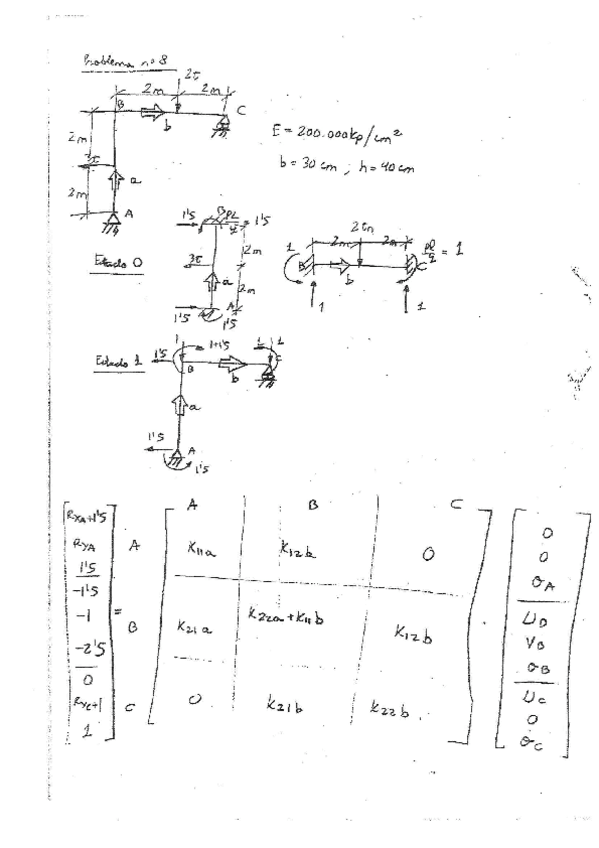 Problema nº 8
2t
2m 2m
B C
b
2m
3t
a
2m
A
E = 200.000 kp/cm²
b = 30 cm ; h = 40 cm
Estado 0
1'5 B 1'5
2m
3t
a
2m
A
1'5 1'5
2tn
2m 2m
1
B C
b
Pl/4 = 1
1 1
Estado 1
1 1+1'5 1 1
1'5
B C
b
a
1'5 A
1'5
A B C
RXA+1'5
RYA
1'5
-1'5
-1
-2'5
0
RYC+1
1
=
A K11a K12a 0
B K21a K22a+K11b K12b
C 0 K21b K22b
0
0
θA
UB
VB
θB
UC
0
θC